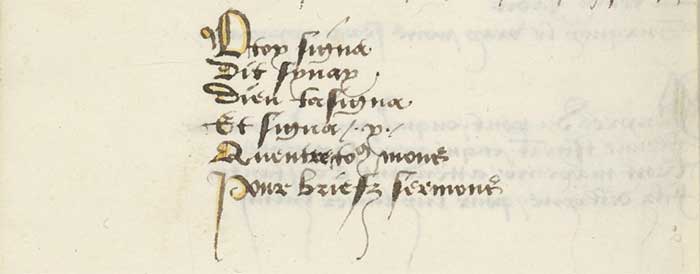 O toy signa
Dit synay
Dieu tasigna
Et signa /.x./
Quentre to9 mons
Pour briefz sermons